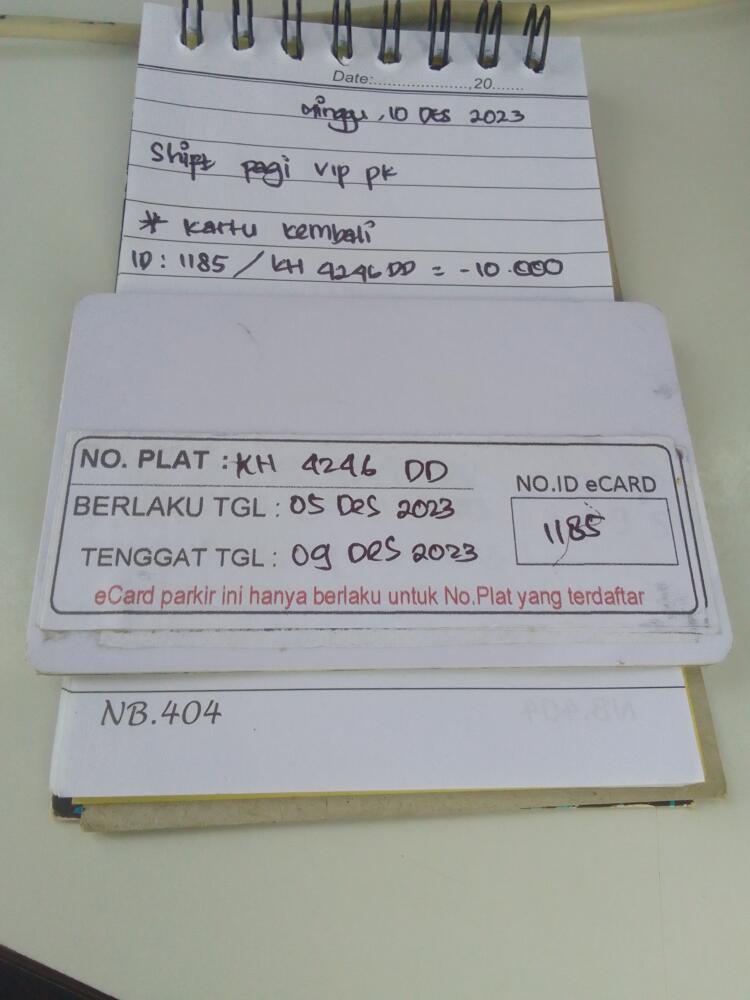 Date:....................,20.......
Minggu, 10 Des 2023
Shift pagi VIP PK
* Kartu kembali
ID : 1185 / KH 4246 DD = -10.000
NO. PLAT : KH 4246 DD
BERLAKU TGL : 05 Des 2023
TENGGAT TGL : 09 Des 2023
NO.ID eCARD
1185
eCard parkir ini hanya berlaku untuk No.Plat yang terdaftar
NB.404